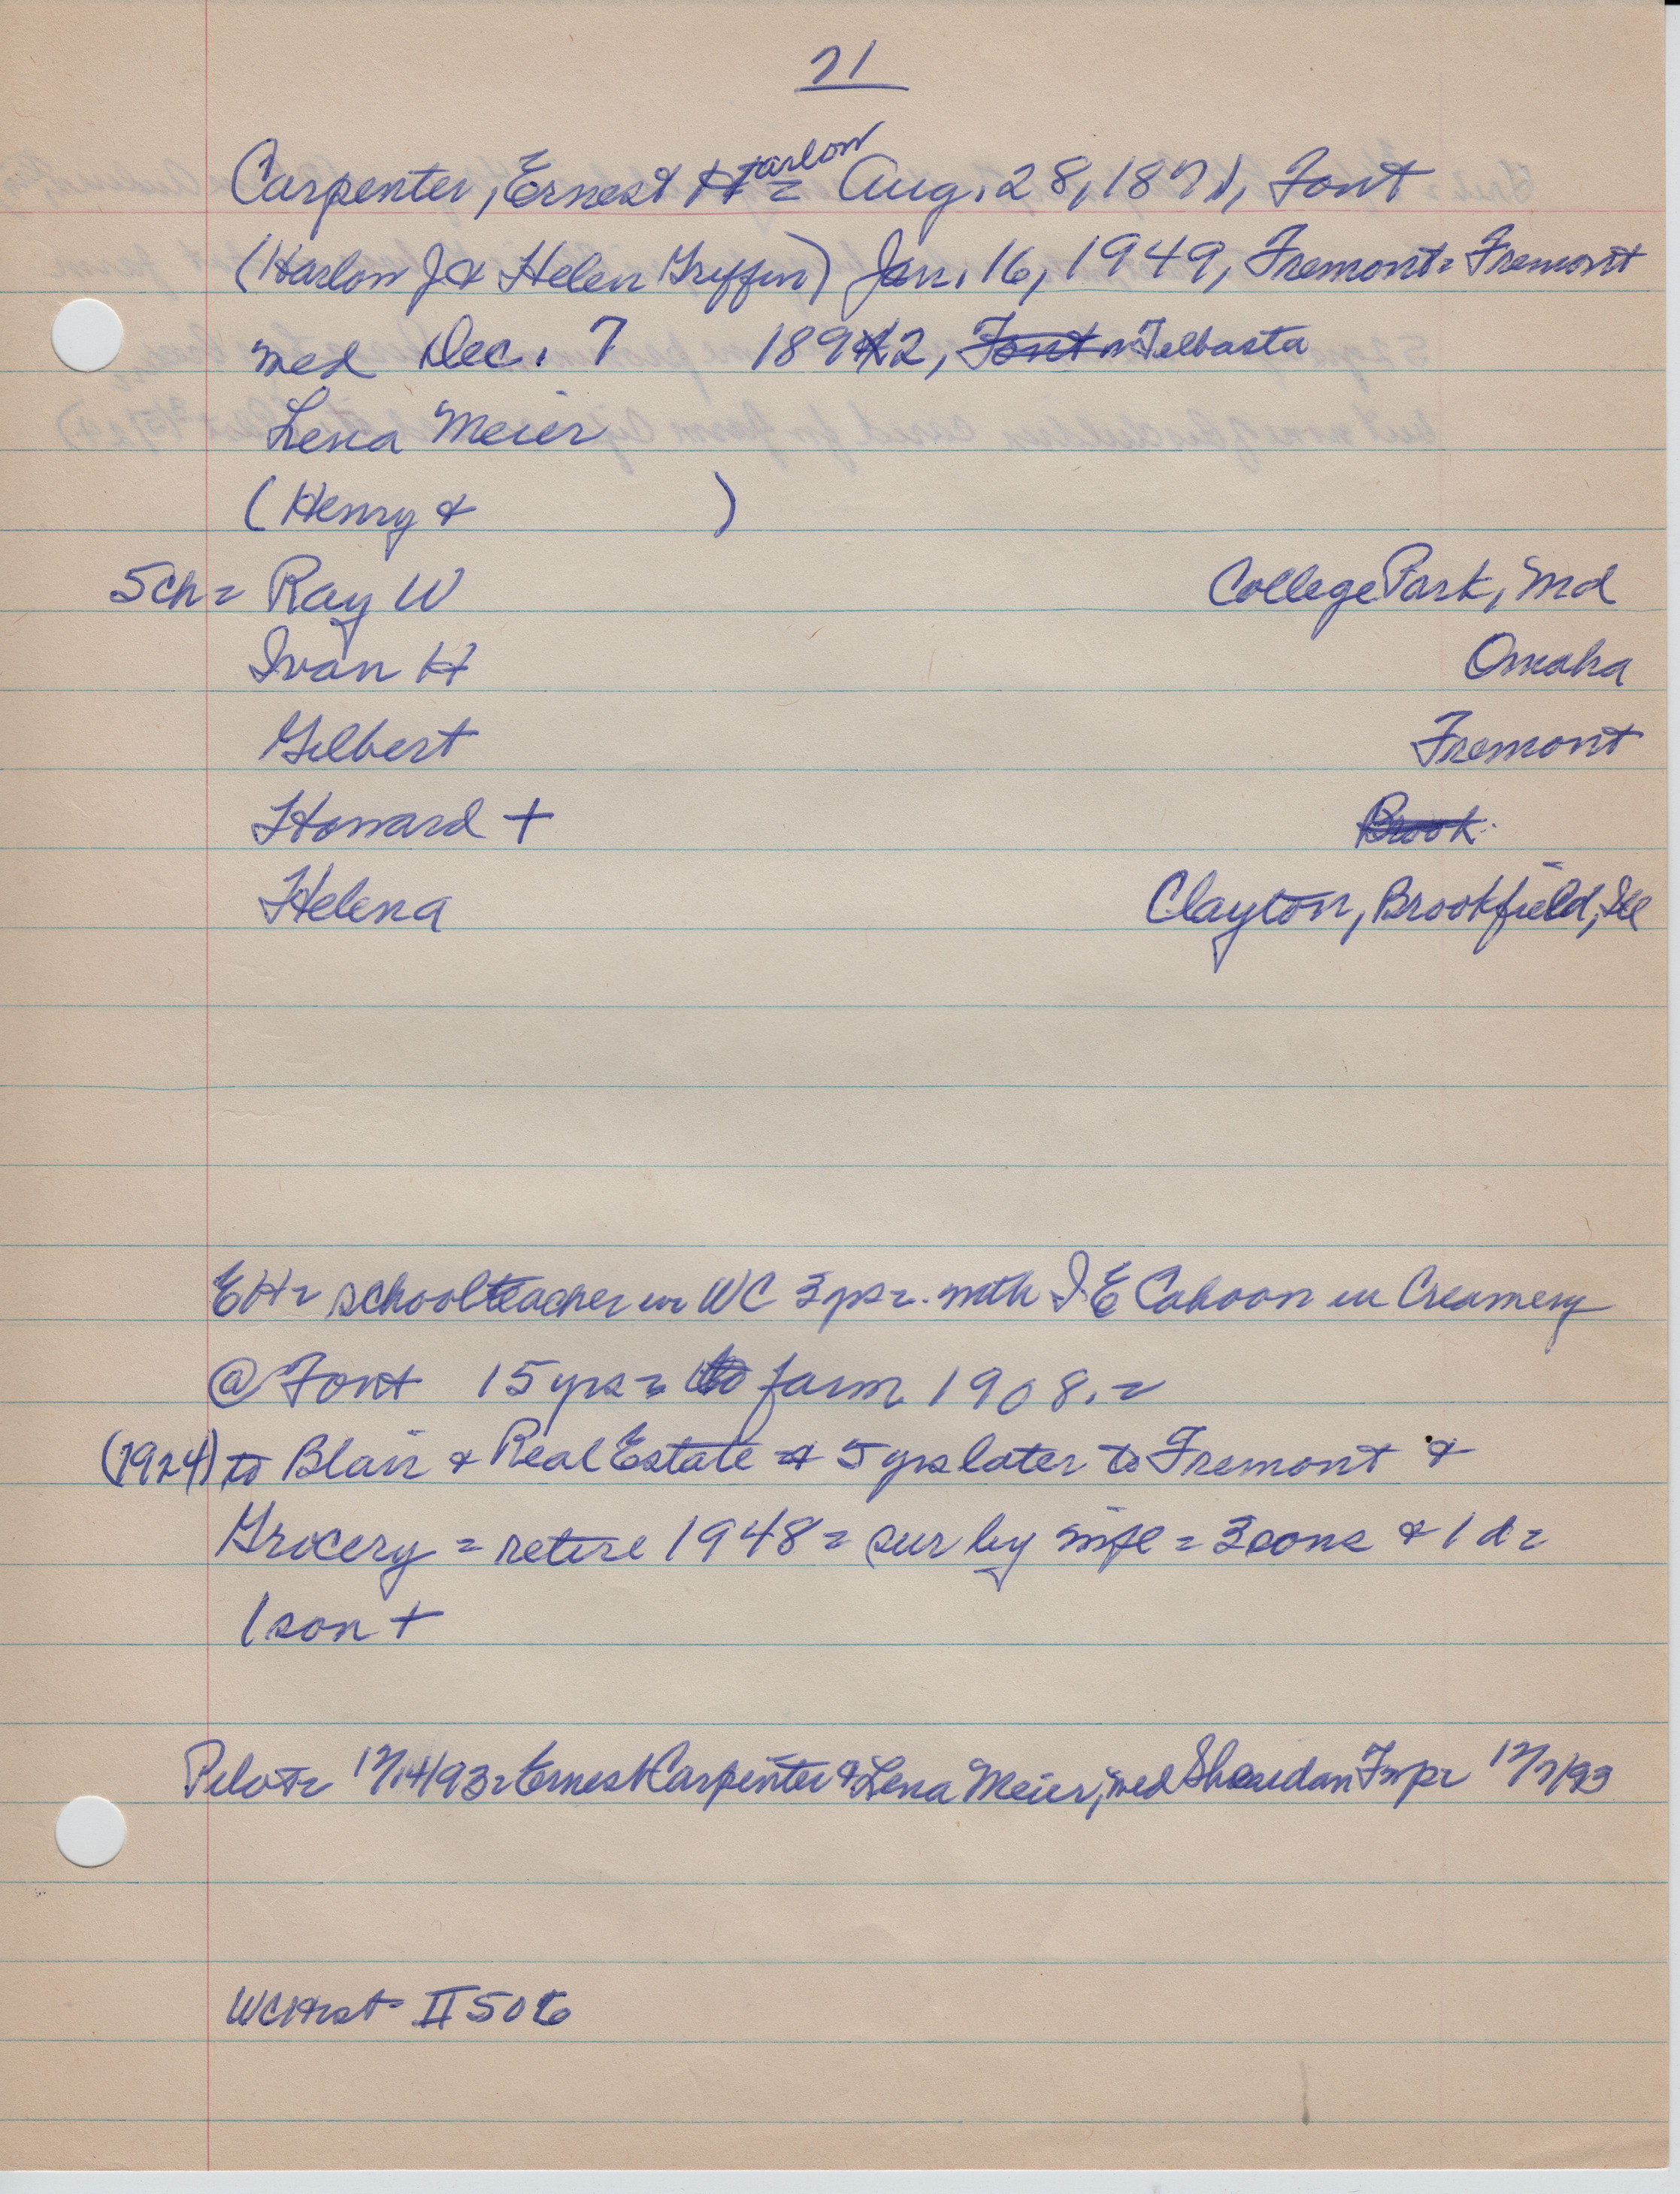 21
Carpenter, Ernest Harlon = Aug. 28, 1871, Font
(Harlon J & Helen Griffin) Jan. 16, 1949, Fremont = Fremont
med Dec. 7 1892, Font Telbasta
Lena Meier
(Henry & )
5ch = Ray W College Park, Md
Ivan H Omaha
Gilbert Fremont
Howard + Brook
Helena Clayton, Brookfield, Ill
EH = schoolteacher in WC 3 yrs = with I E Cahoon in Creamery
@ Font 15 yrs = to farm 1908. =
(1924) to Blair & Real Estate & 5 yrs later to Fremont &
Grocery = retire 1948 = sur by wife = 3 sons & 1 d =
1 son +
Pilot = 12/14/93 = Ernest Carpenter & Lena Meier, med Sheridan Twp = 12/7/93
WCHist II 506